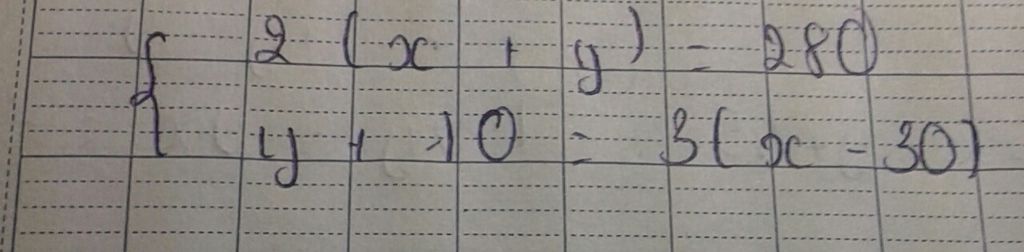 { 2 ( x + y ) = 280
y + 10 = 3 ( x - 30 )